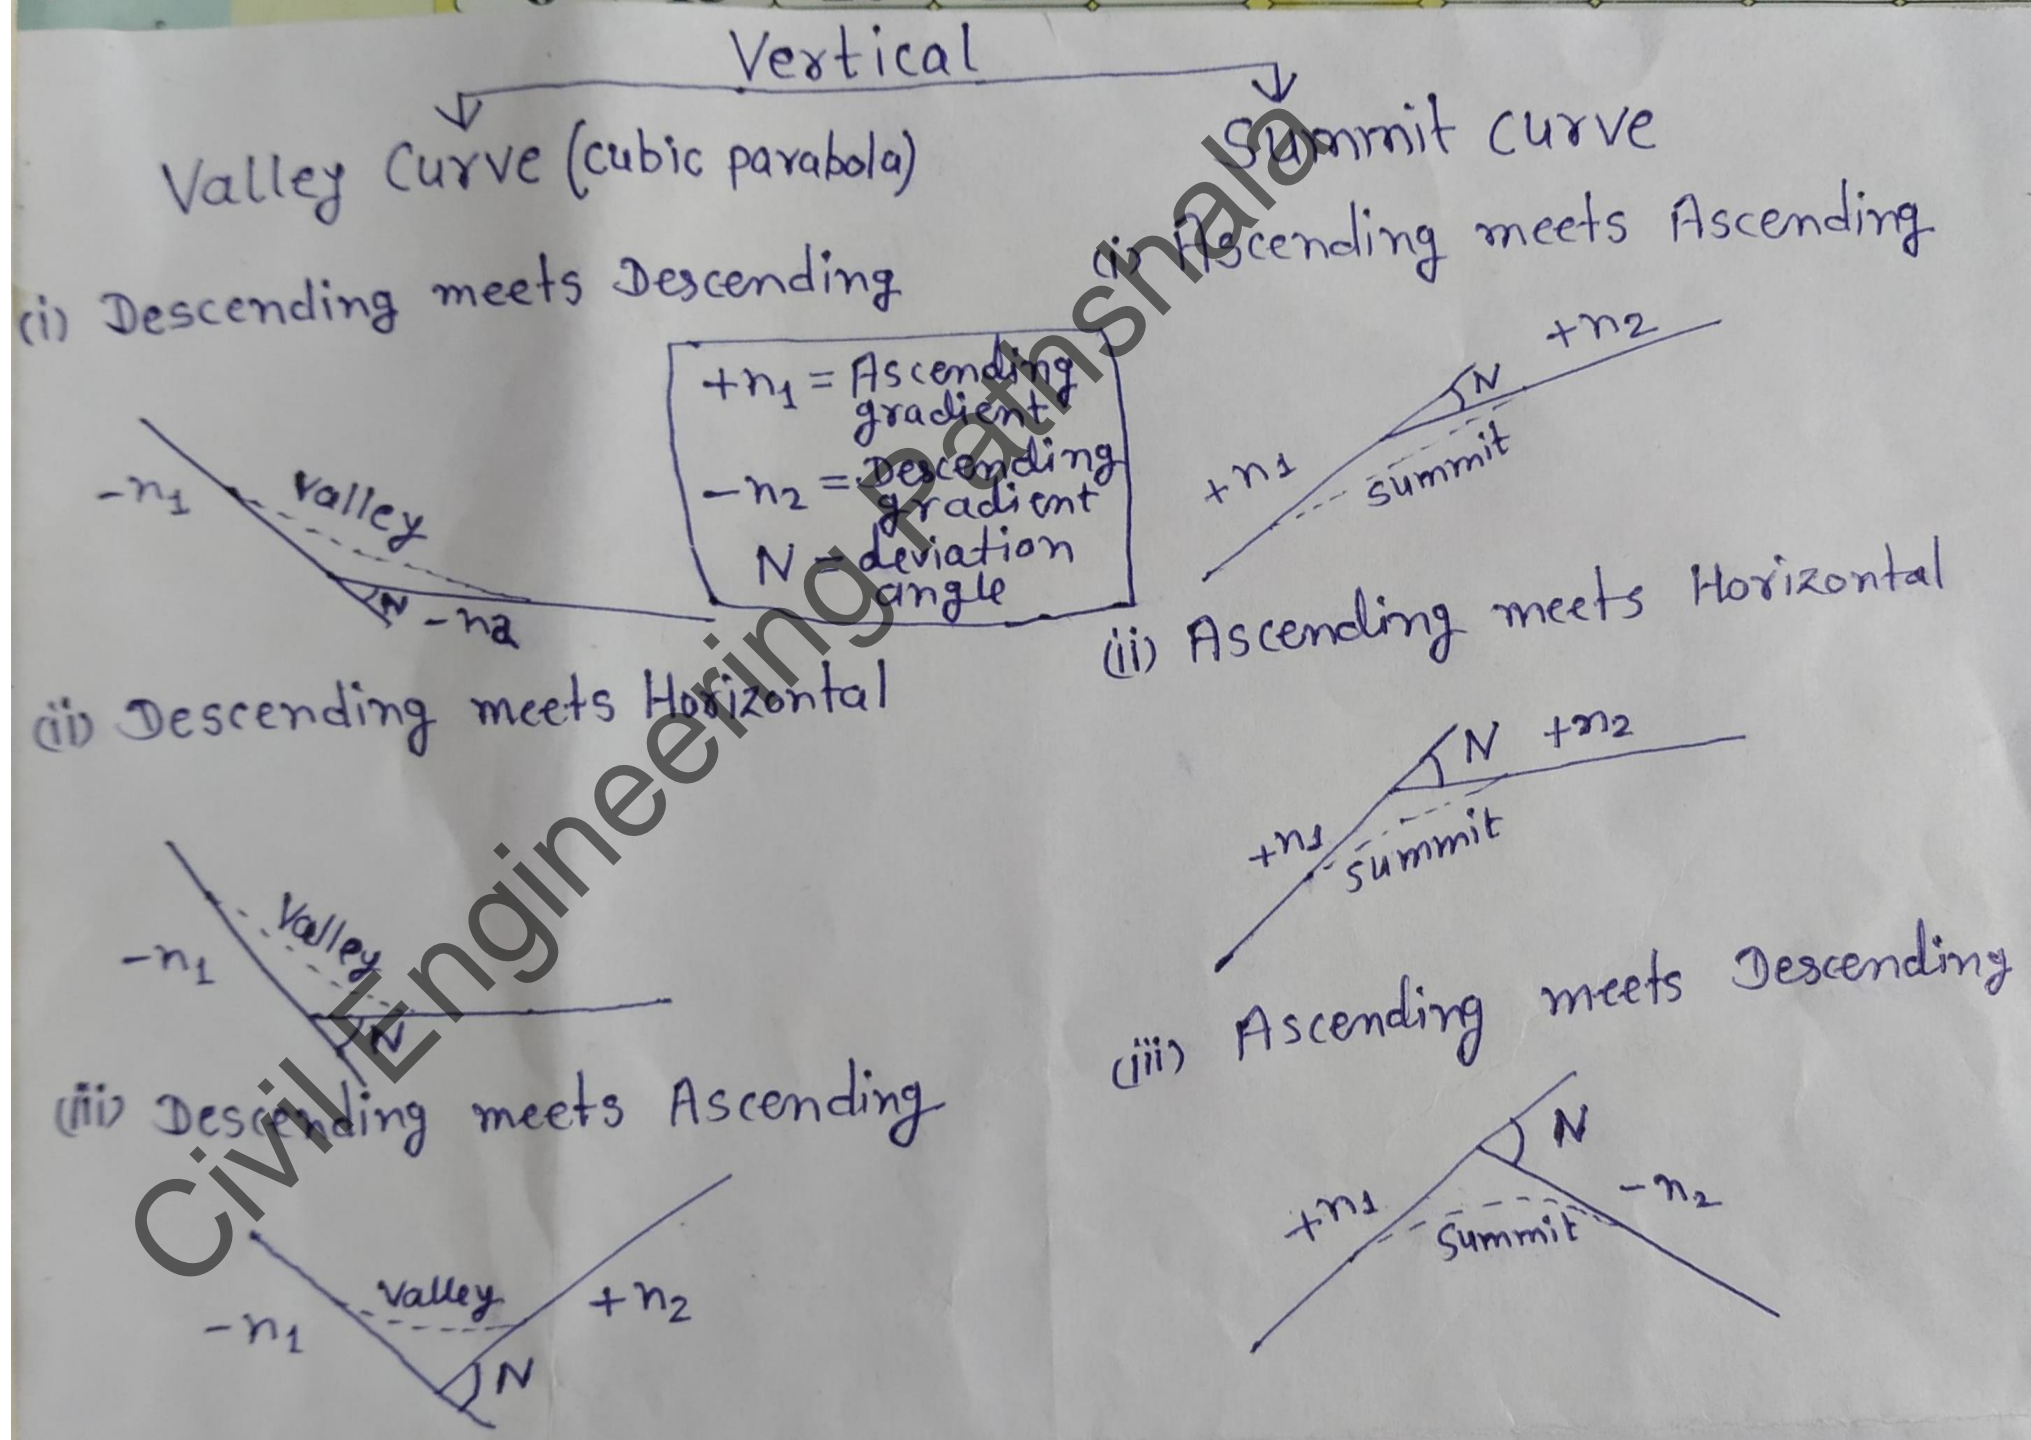 Vertical
Valley Curve (cubic parabola)
(i) Descending meets Descending
-n1
valley
N
-n2
+n1 = Ascending
gradient
-n2 = Descending
gradient
N = deviation
angle
(ii) Descending meets Horizontal
-n1
Valley
N
(iii) Descending meets Ascending
-n1
valley
+n2
N
Summit curve
(i) Ascending meets Ascending
+n1
N
+n2
summit
(ii) Ascending meets Horizontal
+n1
N
+n2
summit
(iii) Ascending meets Descending
+n1
N
-n2
summit
Civil Engineering Pathshala